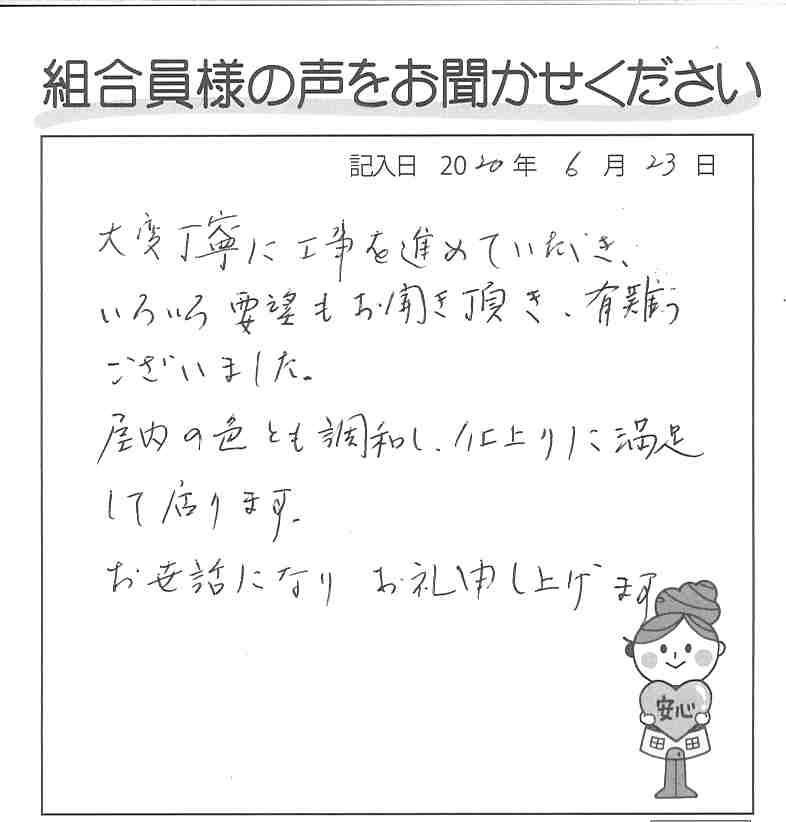 組合員様の声をお聞かせください
記入日 2020年 6月 23日
大変丁寧に工事を進めていただき、
いろいろ要望もお聞き頂き、有難う
ございました。
屋内の色とも調和し、仕上りに満足
して居ります。
お世話になり お礼申し上げます
安心